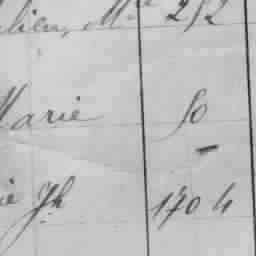 lien, Mce 252
Marie 50
-
ie Jh 170 4